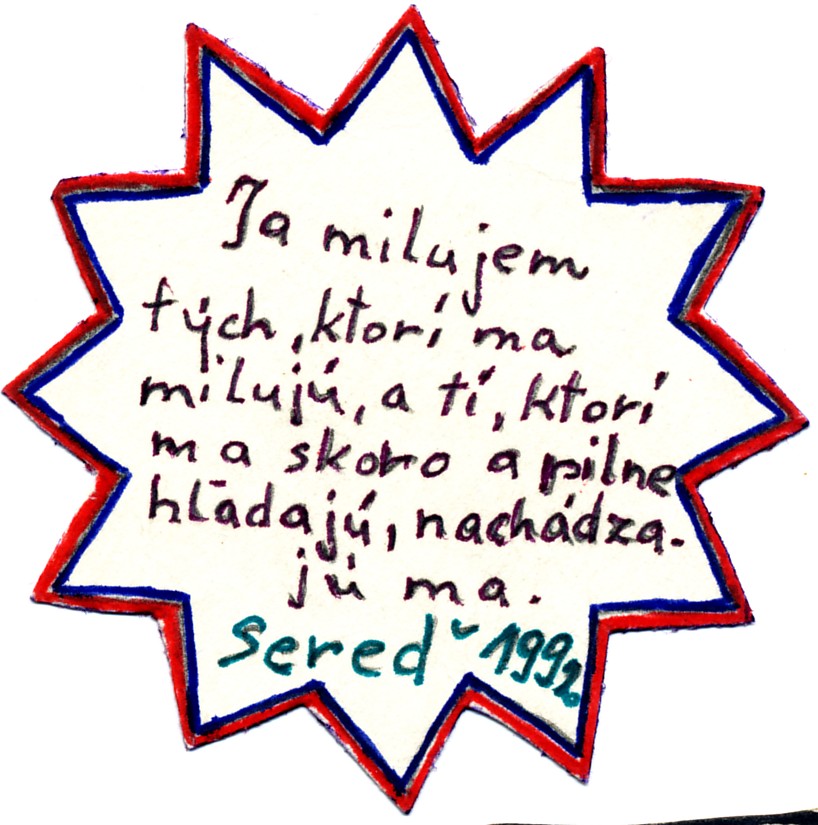 Ja milujem
tých, ktorí ma
milujú, a tí, ktorí
ma skoro a pilne
hľadajú, nachádza-
jú ma.
Sereď 1992